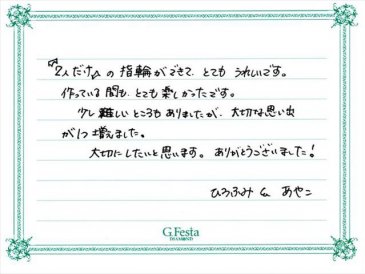 "2人だけ"の指輪ができて、とてもうれしいです。
作っている間も、とても楽しかったです。
少し難しいところもありましたが、大切な思い出
が1つ増えました。
大切にしたいと思います。ありがとうございました!
ひろふみ & あやこ
G.Festa
DIAMOND